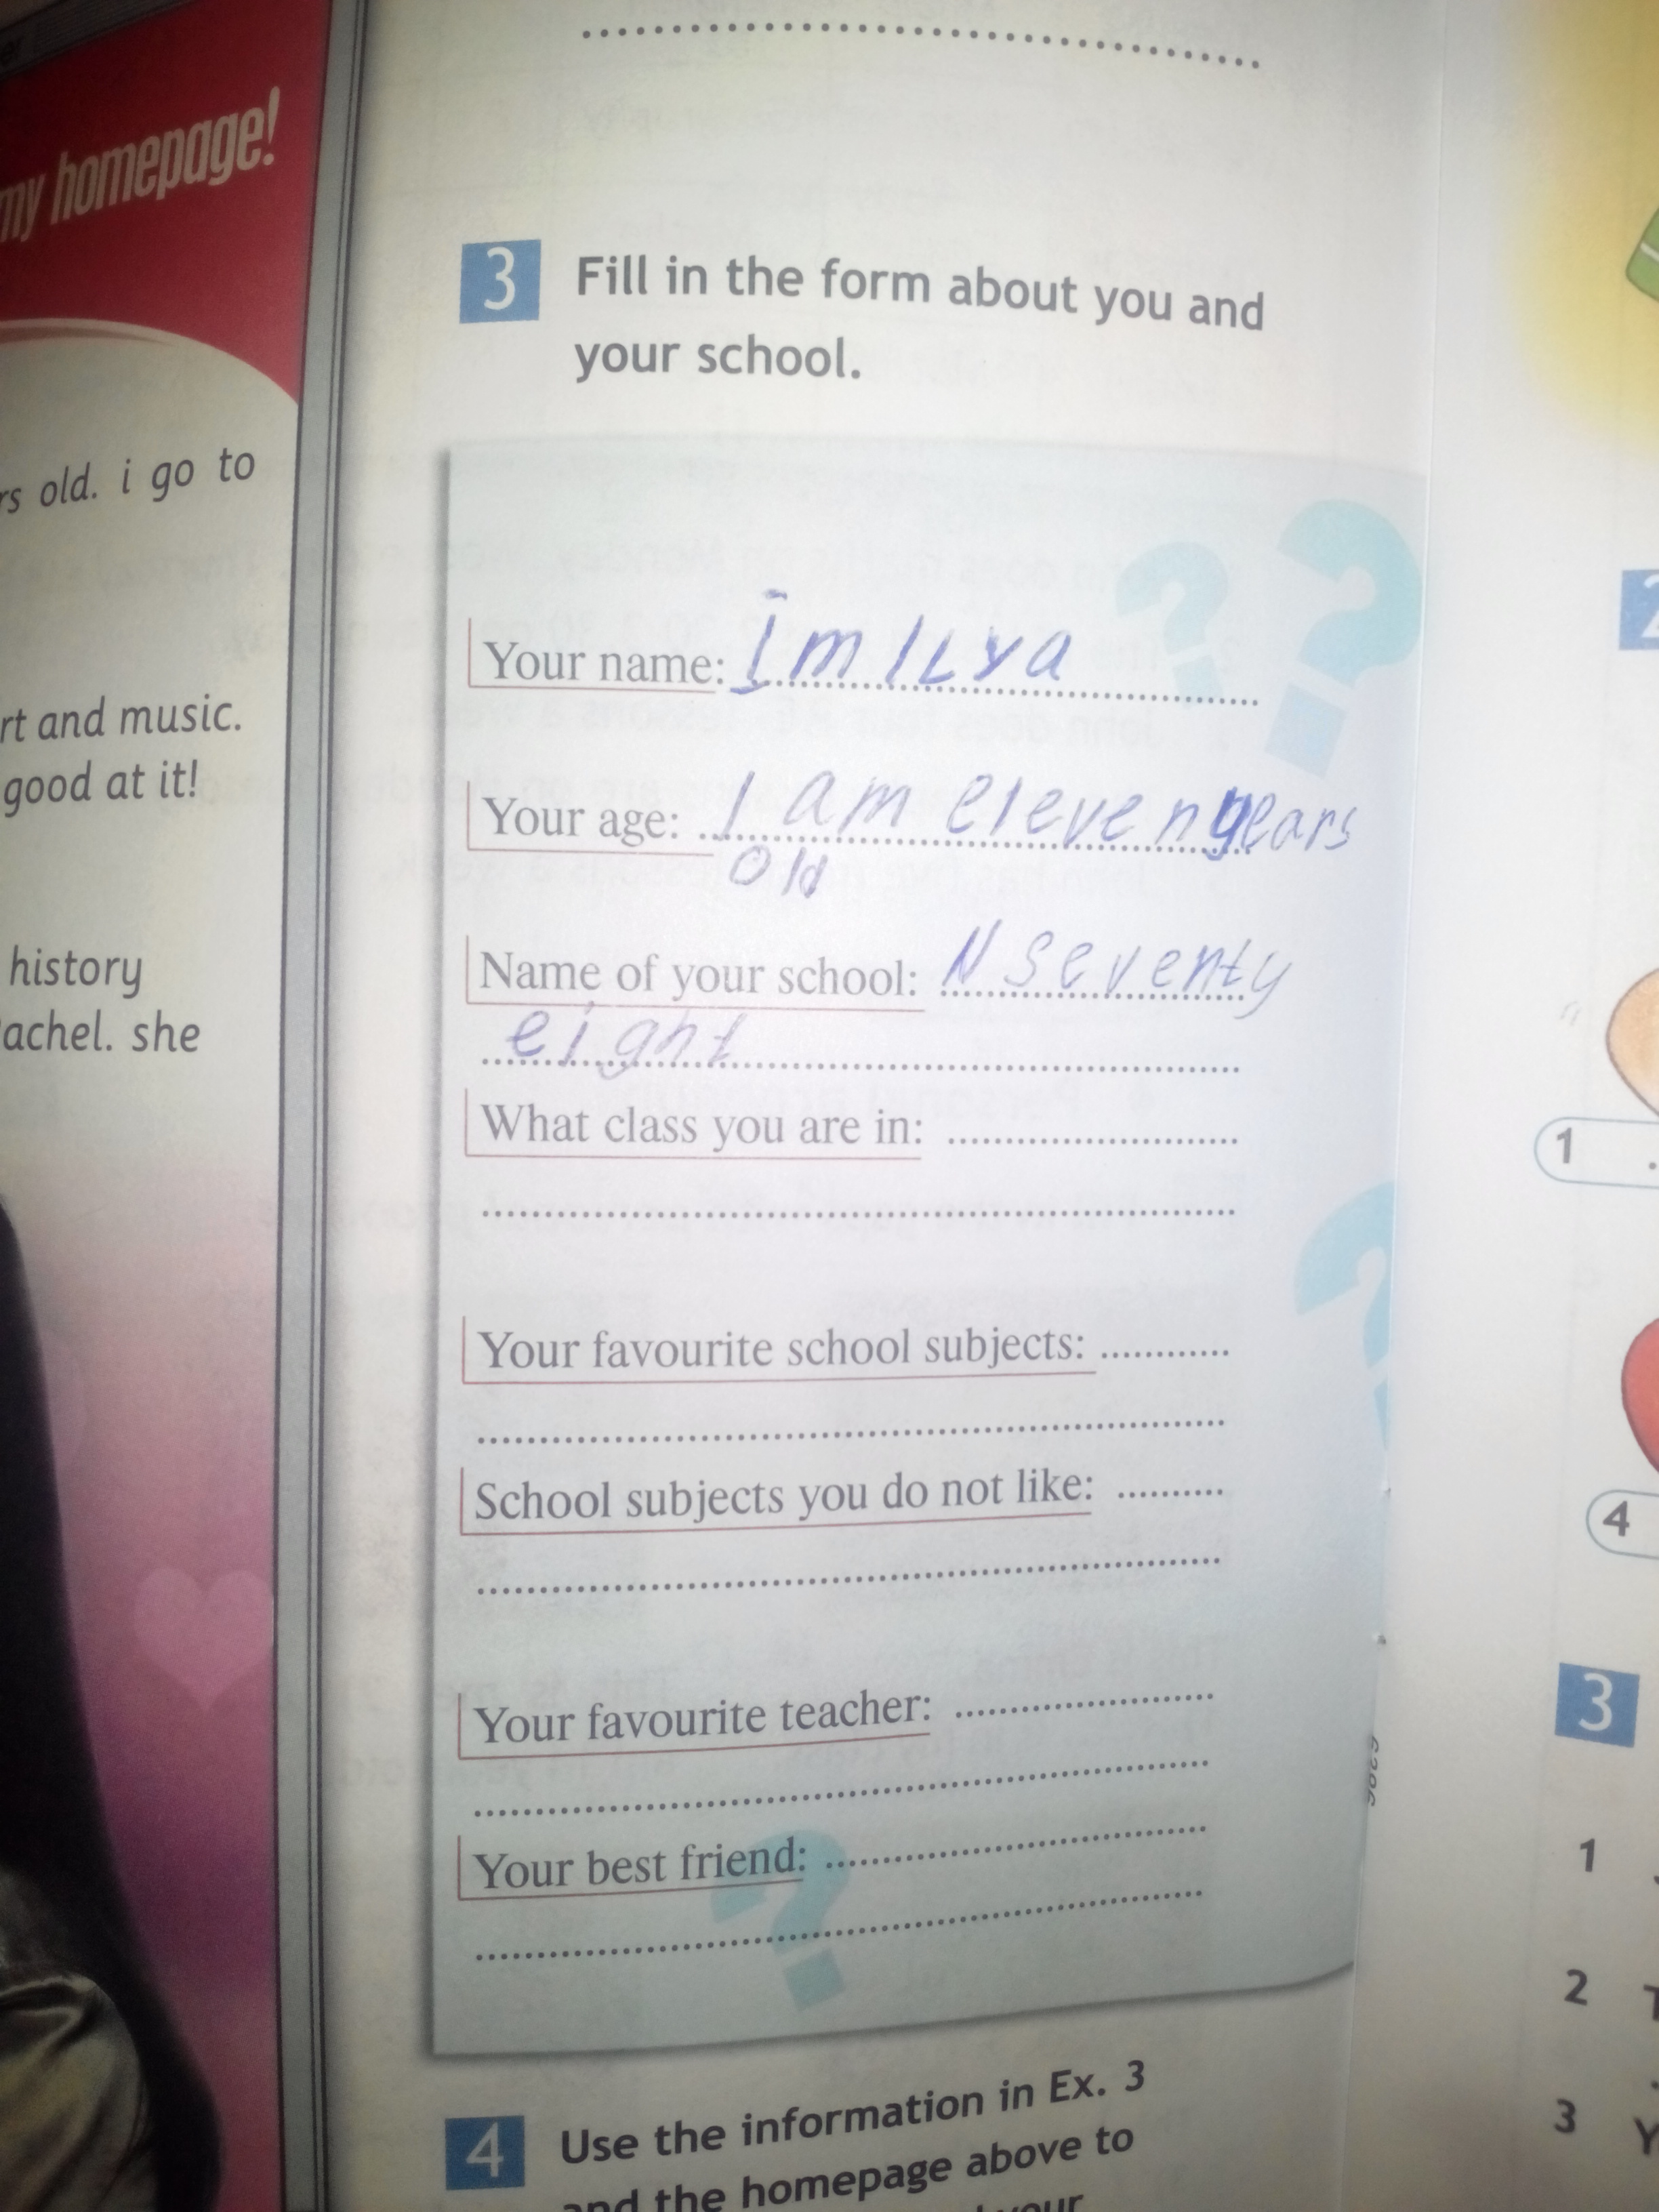 my homepage!
rs old. i go to
rt and music.
good at it!
history
achel. she
3 Fill in the form about you and
your school.
Your name: I m ILYa
Your age: I am eleven years
old
Name of your school: N seventy
eight
What class you are in:
Your favourite school subjects:
School subjects you do not like:
Your favourite teacher:
Your best friend:
4 Use the information in Ex. 3
and the homepage above to
your
2
1
4
3
1
2
3